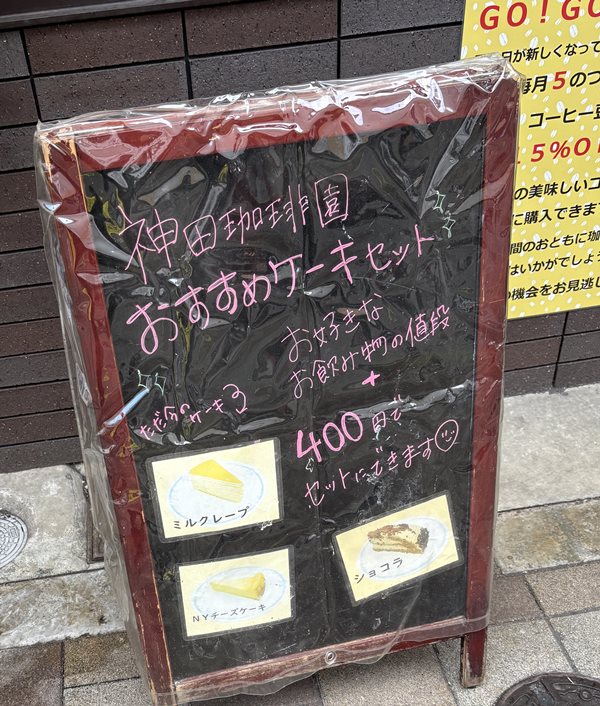 神田珈琲園
おすすめケーキセット
お好きな
お飲み物の値段
+
400円で
セットにできます
ただ今のケーキ
ミルクレープ
NYチーズケーキ
ショコラ
GO!GO
日が新しくなって
毎月5のつ
コーヒー豆
5%O
の美味しいコ
に購入できま
間のおともに珈
はいかがでしょう
の機会をお見逃し